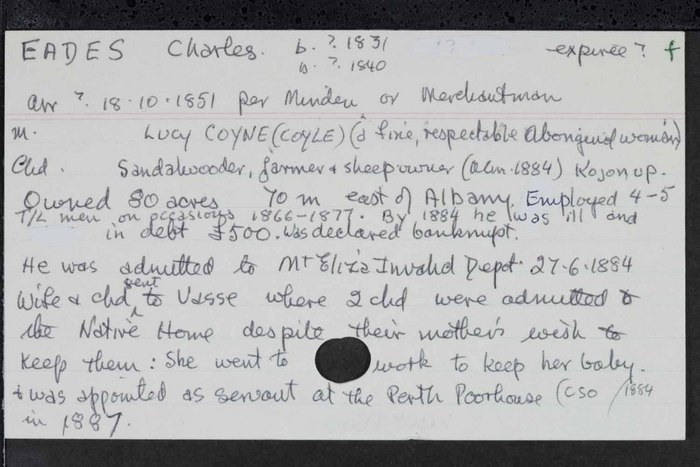 EADES Charles. b. ? 1831 expiree? f
b. ? 1840
arr ? 18.10.1851 per Minden or Merchantman
m. Lucy COYNE (COYLE) (a fine, respectable Aboriginal woman)
Chd. Sandalwooder, farmer & sheepowner (Alm. 1884) Kojonup.
Owned 80 acres 70 m east of Albany. Employed 4-5
T/L men on occasions 1866-1877. By 1884 he was ill and
in debt £500. Was declared bankrupt.
He was admitted to Mt Eliza Invalid Depot 27.6.1884
Wife & chd sent to Vasse where 2 chd were admitted to
the Native Home despite their mother's wish to
keep them: She went to work to keep her baby.
& was appointed as servant at the Perth Poorhouse (CSO /1884
in 1887.